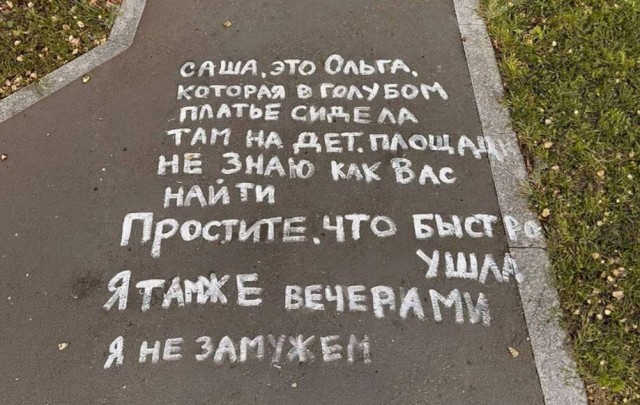 САША, ЭТО ОЛЬГА,
КОТОРАЯ В ГОЛУБОМ
ПЛАТЬЕ СИДЕЛА
ТАМ НА ДЕТ. ПЛОЩАД
НЕ ЗНАЮ КАК ВАС
НАЙТИ
ПРОСТИТЕ, ЧТО БЫСТРО
УШЛА
Я ТАМЖЕ ВЕЧЕРАМИ
Я НЕ ЗАМУЖЕМ